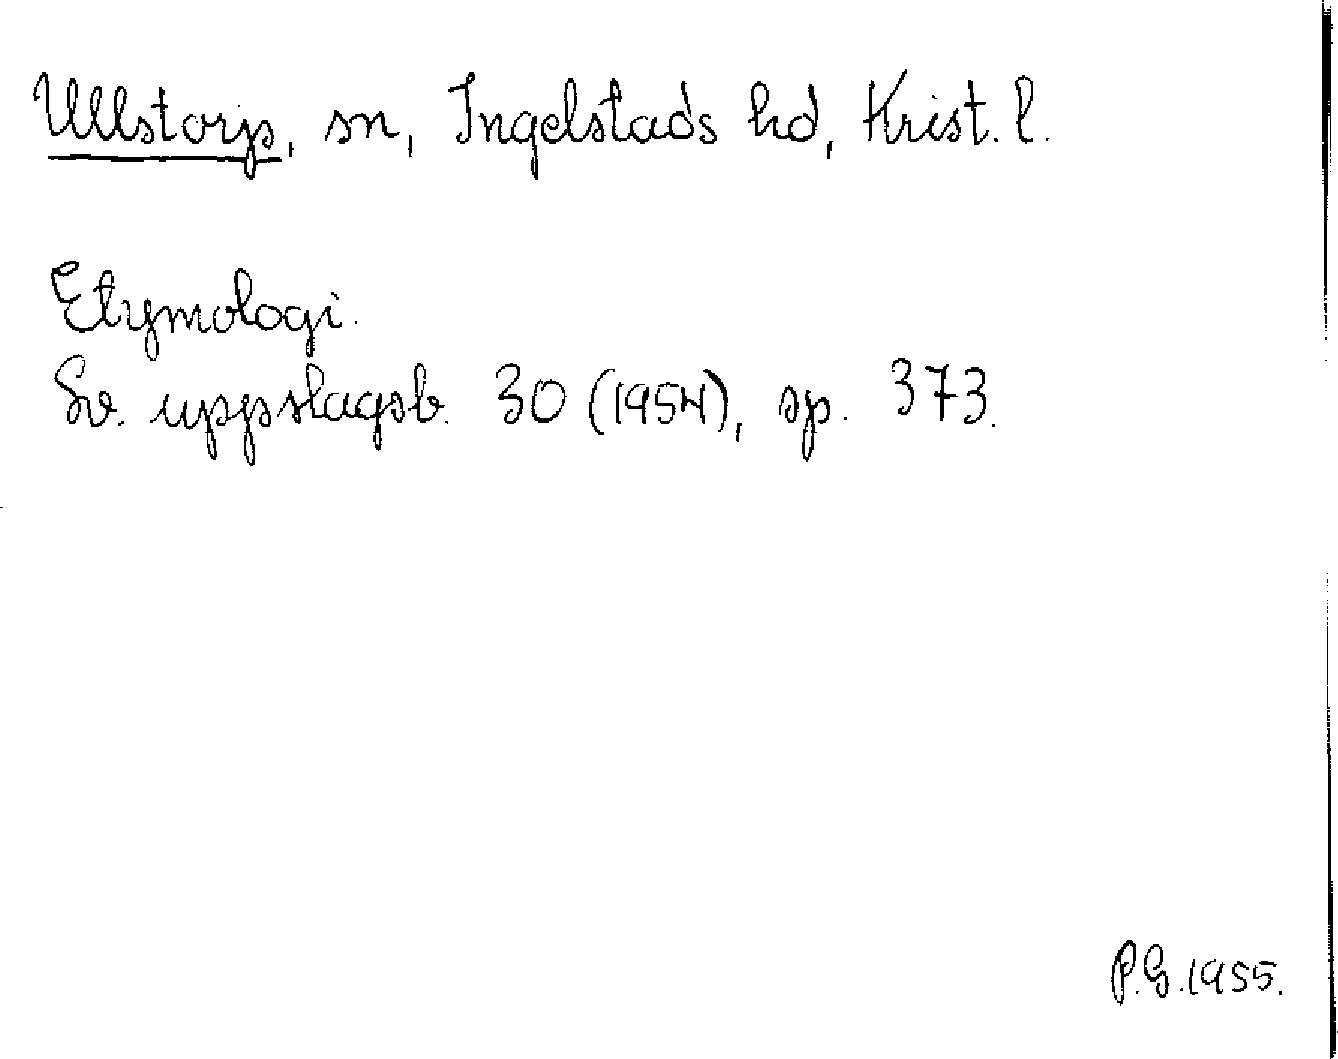 Ullstorp, sn, Ingelstads hd, Krist. l.
Etymologi.
Sv. uppslagsb. 30 (1954), sp. 373.
P.G. 1955.